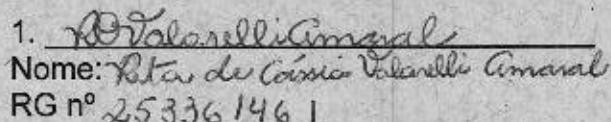 1. RDValarelliAmaral
Nome: Rita de Cássia Valarelli Amaral
RG nº 25336146 1